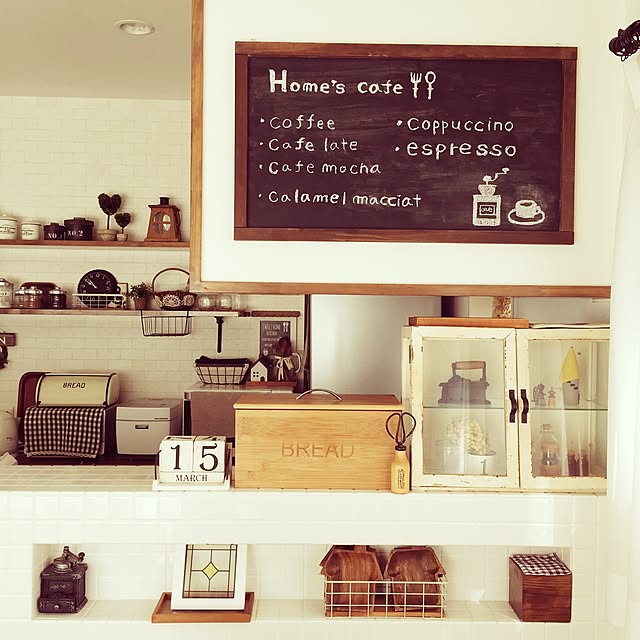 Home's cafe
• Coffee
• Cafe late
• Cafe mocha
• Calamel macciat
• Coppuccino
• espresso
BREAD
BREAD
1 5
MARCH